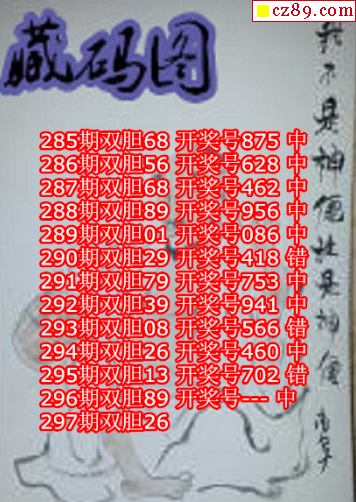 cz89.com
藏码图
我不是神但比是神
285期双胆68 开奖号875 中
286期双胆56 开奖号628 中
287期双胆68 开奖号462 中
288期双胆89 开奖号956 中
289期双胆01 开奖号086 中
290期双胆29 开奖号418 错
291期双胆79 开奖号753 中
292期双胆39 开奖号941 中
293期双胆08 开奖号566 错
294期双胆26 开奖号460 中
295期双胆13 开奖号702 错
296期双胆89 开奖号--- 中
297期双胆26